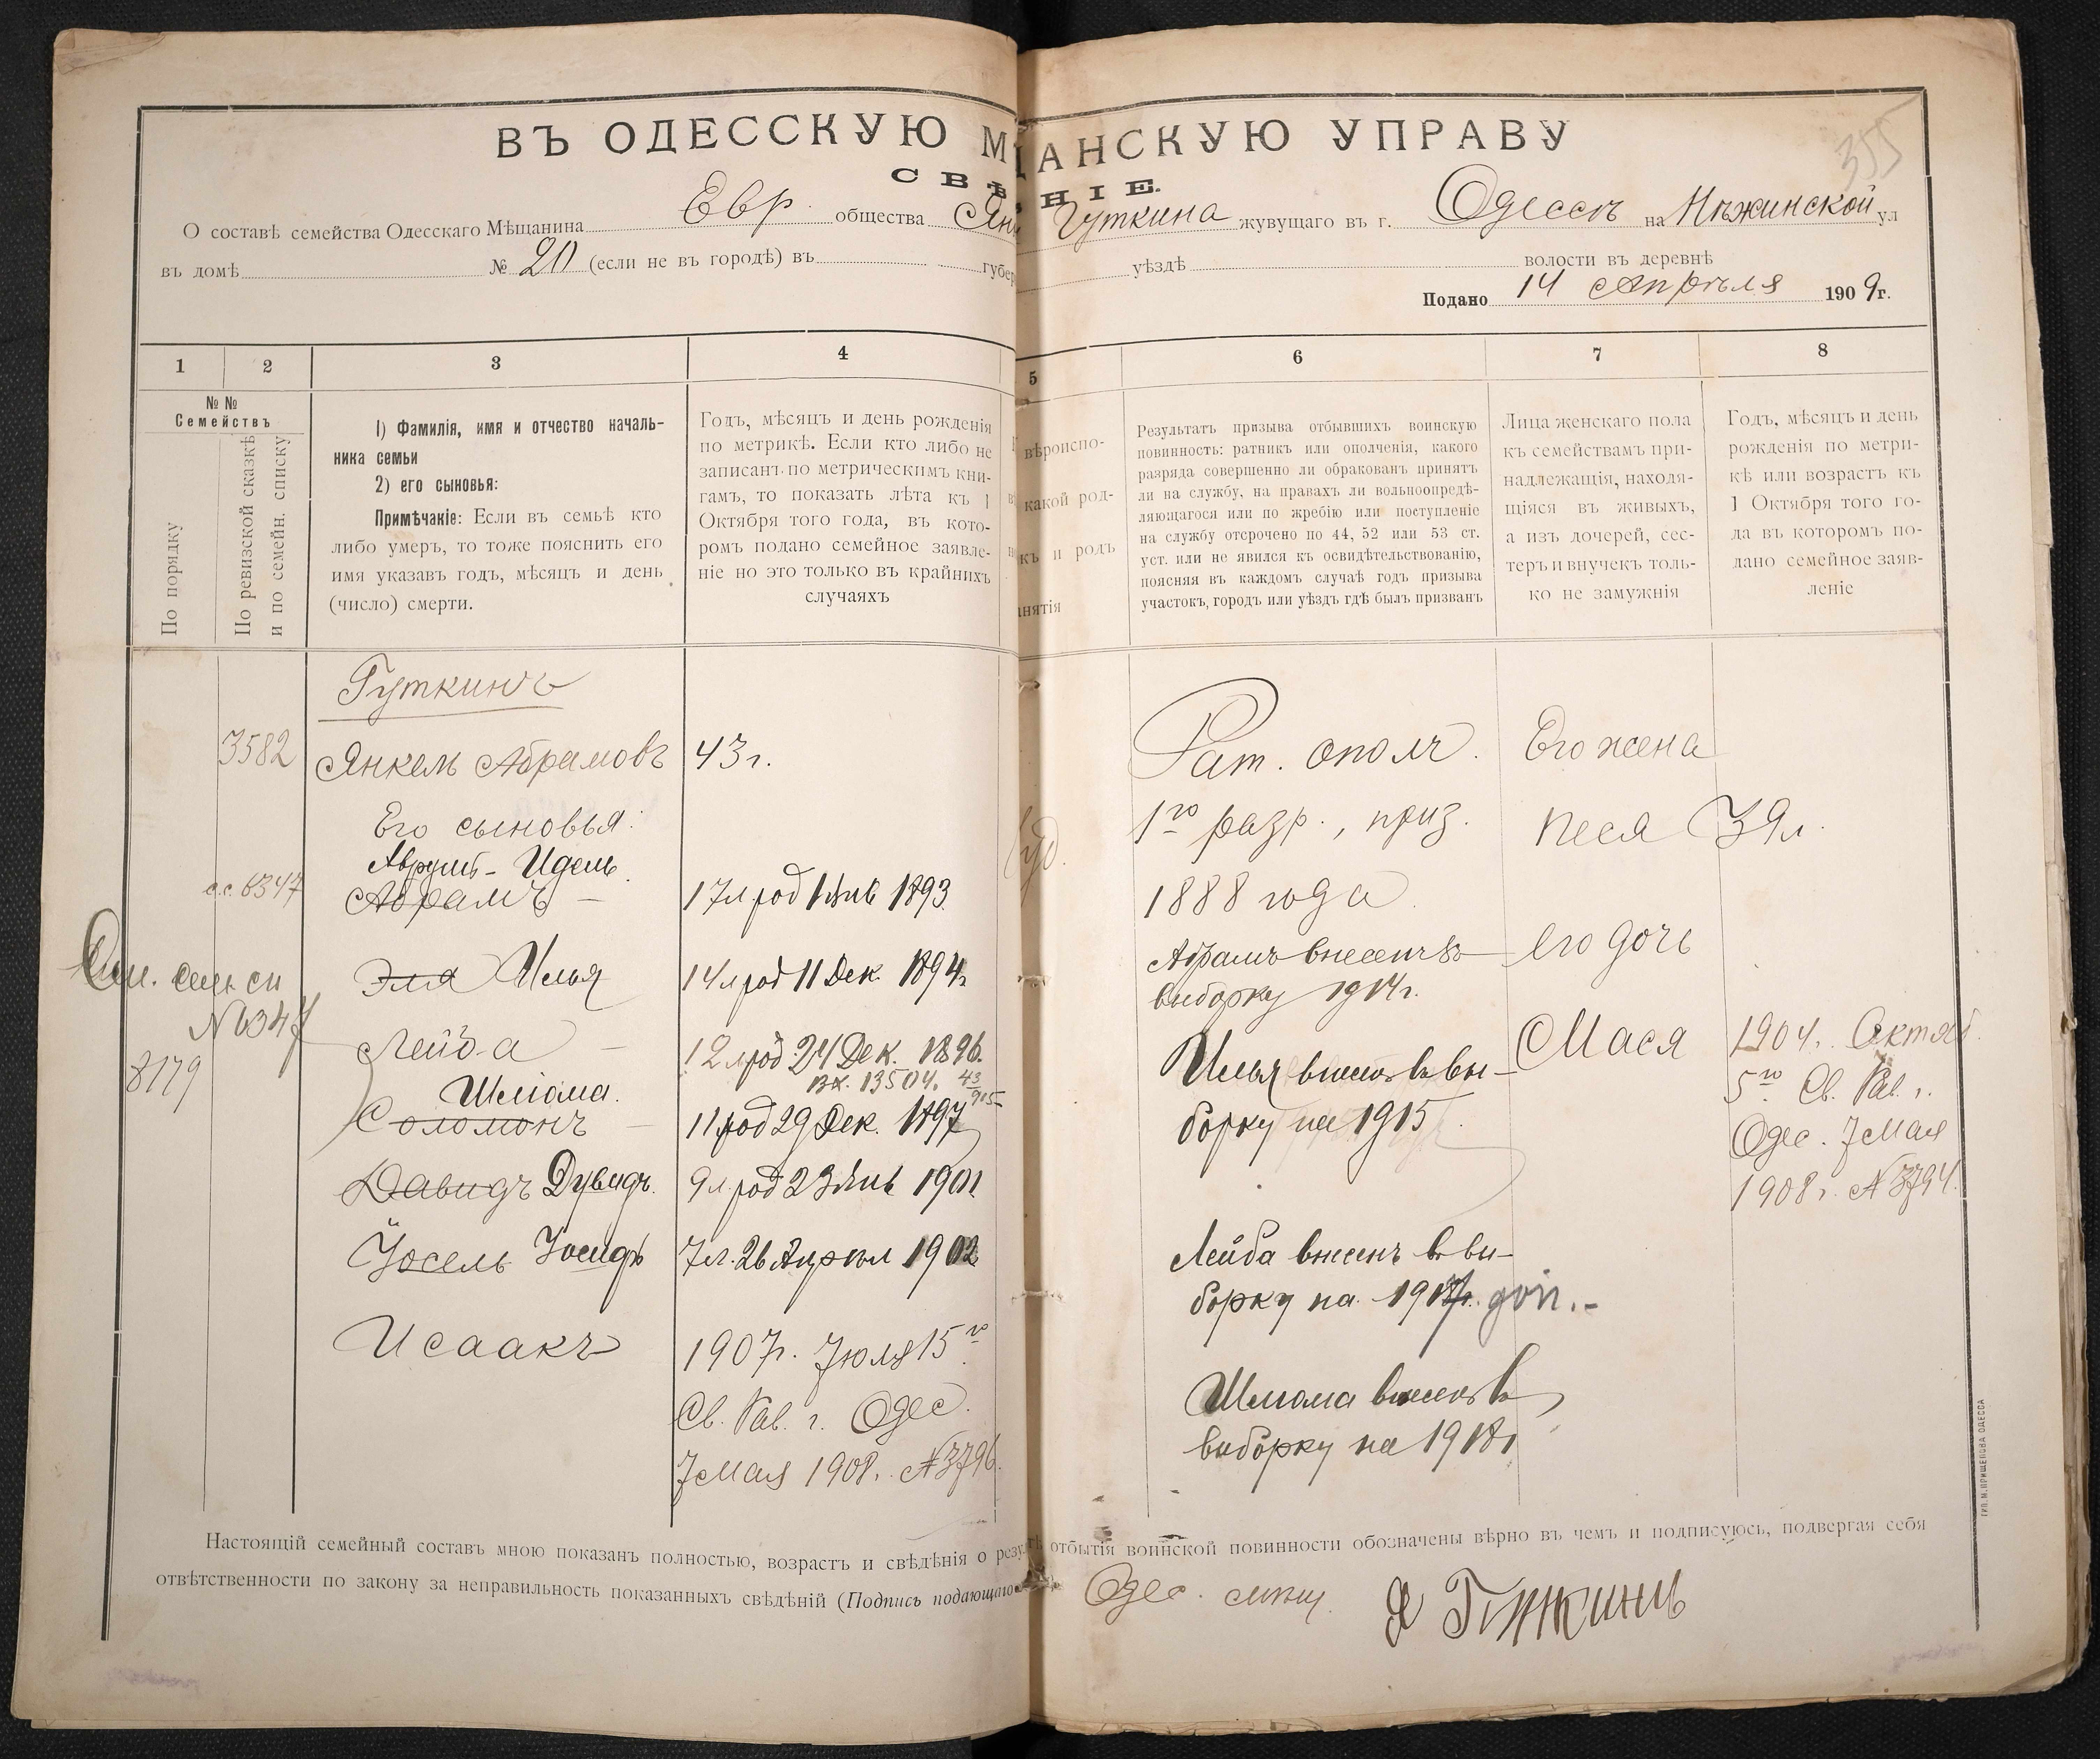 355
ВЪ ОДЕССКУЮ М ЩАНСКУЮ УПРАВУ
СВѢ НІЕ.
О составѣ семейства Одесскаго Мѣщанина Евр. общества Янк Гуткина жувущаго въ г. Одессѣ на Нѣжинской ул
въ домѣ № 20 (если не въ городѣ) въ губер уѣздѣ волости въ деревнѣ
Подано 14 Апрѣля 1909 г.
1 2 3 4 5 6 7 8
№№
Семействъ
По порядку
По ревизской сказкѣ
и по семейн. списку
1) Фамилія, имя и отчество началь-
ника семьи
2) его сыновья:
Примѣчакіе: Если въ семьѣ кто
либо умеръ, то тоже пояснить его
имя указавъ годъ, мѣсяцъ и день
(число) смерти.
Годъ, мѣсяцъ и день рожденія
по метрикѣ. Если кто либо не
записанъ по метрическимъ кни-
гамъ, то показать лѣта къ 1
Октября того года, въ кото-
ромъ подано семейное заявле-
ніе но это только въ крайнихъ
случаяхъ
вѣроиспо-
какой род-
къ и родъ
анятія
Результатъ призыва отбывшихъ воинскую
повинность: ратникъ или ополченія, какого
разряда совершенно ли обракованъ принятъ
ли на службу, на правахъ ли вольноопредѣ-
ляющагося или по жребію или поступленіе
на службу отсрочено по 44, 52 или 53 ст.
уст. или не явился къ освидѣтельствованію,
поясняя въ каждомъ случаѣ годъ призыва
участокъ, городъ или уѣздъ гдѣ былъ призванъ
Лица женскаго пола
къ семействамъ при-
надлежащія, находя-
щіяся въ живыхъ,
а изъ дочерей, сес-
теръ и внучекъ толь-
ко не замужнія
Годъ, мѣсяцъ и день
рожденія по метри-
кѣ или возрастъ къ
1 Октября того го-
да въ которомъ по-
дано семейное заяв-
леніе
Гуткинъ
3582 Янкель Абрамовъ 43 г.
Его сыновья:
Аврумъ-Идель.
с.с. 6347 Абрамъ – 17 л род 1 Янв 1893
Эля Илья 14 л род 11 Дек. 1894 г
См. семь сп
№ 6347
Лейба – 12 л род 24 Дек. 1896.
вх. 13504. 43/915
8179
Шлёма.
Соломонъ – 11 род 29 Дек. 1897
Давидъ Дувидъ. 9 л. род 23 Янв 1901
Іосель Іосифъ 7 л. 26 Апрѣл 1902
Исаакъ 1907 г. Іюля 15го
Св. Рав. г. Одес.
7 Мая 1908 г. № 3796.
Іуд.
Рат. ополч.
1го разр., приз.
1888 года
Абрамъ внесенъ въ
выборку 1914 г.
Илья внесенъ въ вы-
борку на 1915
Лейба внесенъ въ вы-
борку на 1917 г. доп. -
Шлома внесенъ въ
выборку на 1918 г
Его жена
Песя 39 л.
его дочь
Мася
1904 г. Октяб.
5го Св. Рав. г.
Одес. 7 Мая
1908 г. № 3794.
Настоящій семейный составъ мною показанъ полностью, возрастъ и свѣдѣнія о резул тѣ отбытія воинской повинности обозначены вѣрно въ чемъ и подписуюсь, подвергая себя
отвѣтственности по закону за неправильность показанныхъ свѣдѣній (Подпись подающаго
Одес. мѣщ. Я Гуткинъ
ТИП. М. ПРИЩЕПОВА ОДЕССА